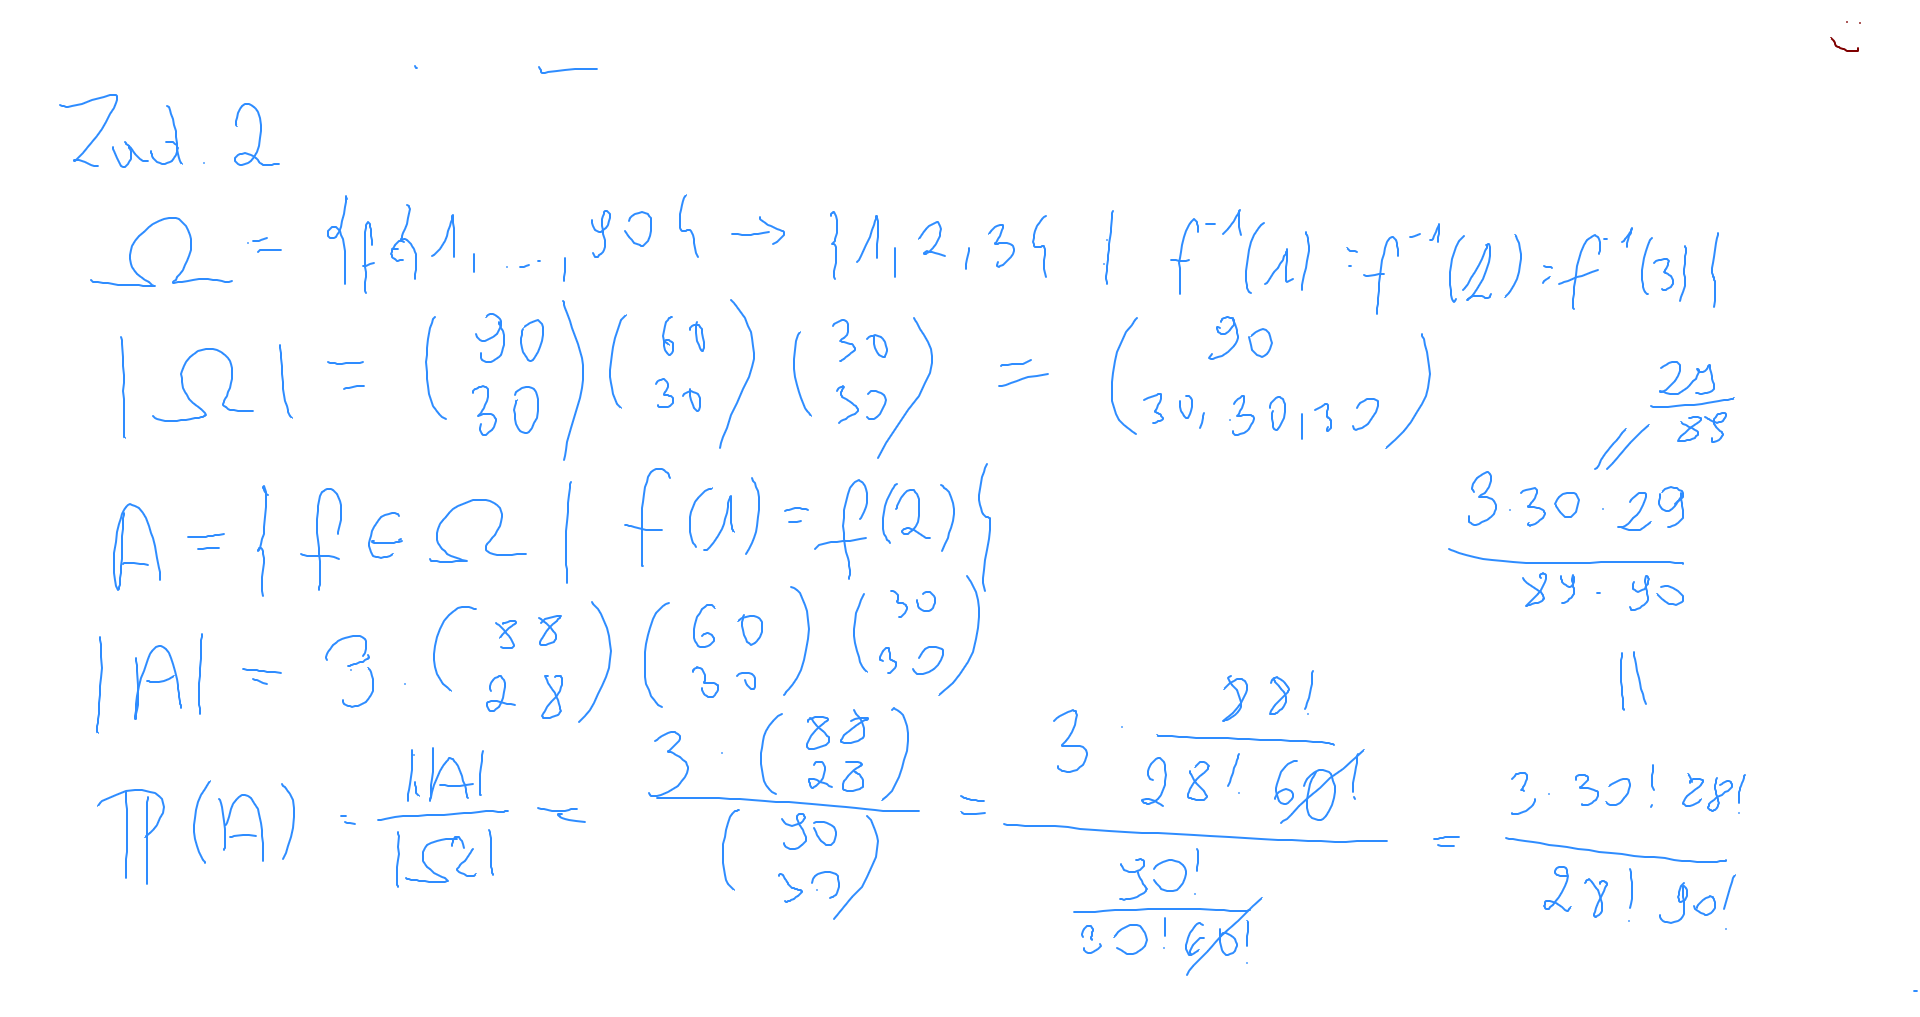 Zad. 2
Ω = {f: {1, ..., 90} → {1, 2, 3} | f⁻¹(1) = f⁻¹(2) = f⁻¹(3)}
|Ω| = (90 30) (60 30) (30 30) = (90 30, 30, 30)
A = {f ∈ Ω | f(1) = f(2)}
|A| = 3 · (88 28) (60 30) (30 30)
P(A) = |A| / |Ω| = 3 · (88 28) / (90 30) = 3 · 88! / (28! 60!) / (90! / (30! 60!)) = 3 · 30! 88! / (28! 90!)
= 3 · 30 · 29 / (89 · 90)
= 29 / 89